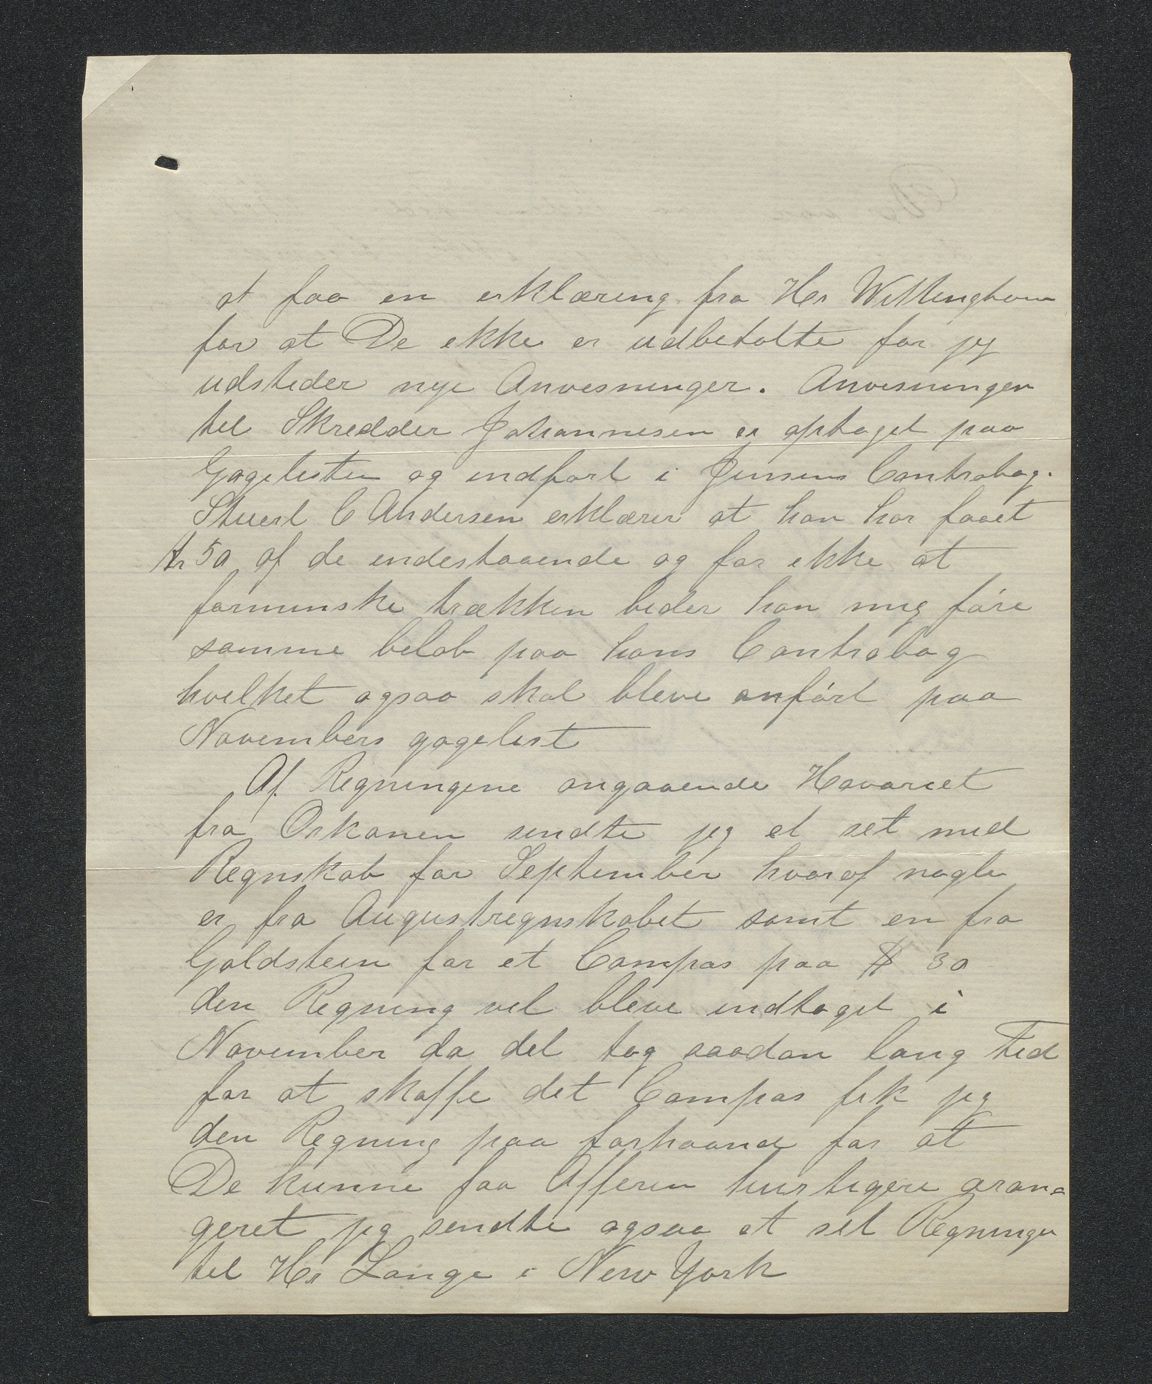 at faa en erklæring fra Hr Willingham
for at De ikke er udbetalte før jeg
udsteder nye Anvesninger. Anvesningen
til Skredder Johannesen er optaget paa
Gagelisten og indført i Jensens Contrabog.
Stuert C Andersen erklærer at han har faaet
Kr 50 af de indestaaende og for ikke at
forminske trækken beder han mig føre
samme beløb paa hans Contrabog
hvilket ogsaa skal bleve anført paa
Novembers gageliste
Af Regningene angaaende Havariet
fra Orkanen sendte jeg et set med
Regnskab for September hvoraf nogle
er fra Augustregnskabet samt en fra
Goldstein for et Compas paa $ 30
den Regning vil bleve indtaget i
November da det tog saadan lang Tid
for at skaffe det Compas fik jeg
den Regning paa forhaand for at
De kunne faa Afferen hurtigere aran=
geret jeg sendte ogsaa et set Regninger
til Hr Lange i New York